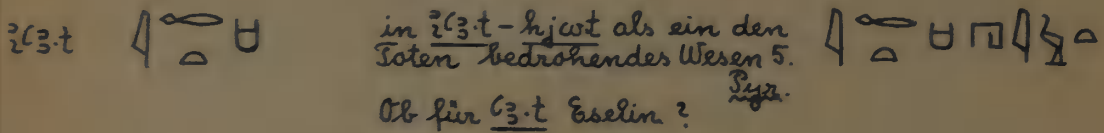 ꞽꜥꜣ.t
in ꞽꜥꜣ.t-hjwt als ein den
Toten bedrohendes Wesen 5.
Pyr.
Ob für ꜥꜣ.t Eselin?